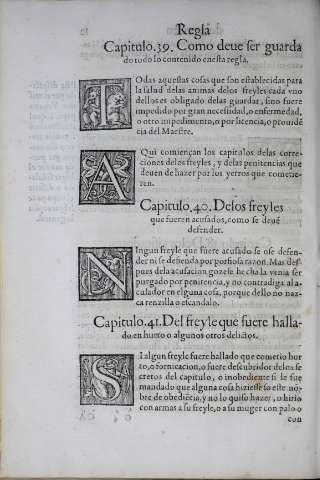 Regla
Capitulo.39. Como deue ser guarda
do todo lo contenido en esta regla.
TOdas aquestas cosas que son establecidas para
la salud delas animas delos freyles cada vno
dellos es obligado delas guardar, sino fuere
impedido por gran necesidad, o enfermedad,
o otro impedimento, o por licencia, o prouidẽ
cia del Maestre.
AQui comiençan los capitulos delas corre
ciones delos freyles, y delas penitencias que
deuen de hazer por los yerros que cometie-
ren.
Capitulo.40. Delos freyles
que fueren acusados, como se deuẽ
defender.
NIngun freyle que fuere acusado se ose defen-
der ni se defienda por porfiosa razon. Mas des-
pues dela acusacion gozese hecha la venia ser
purgado por penitencia, y no contradiga al a-
cusador en alguna cosa, porque dello no naz-
ca renzilla o escandalo.
Capitulo.41. Del freyle que fuere halla-
do en hurto o algunos otros delictos.
SI algun freyle fuere hallado que cometio hur
to, o fornicacion, o fuere descubridor delos se
cretos del capitulo, o inobediente si le fue
mandado que alguna cosa hiziesse so este nõ-
bre de obediẽcia, y no lo quiso hazer, o hirio
con armas a su freyle, o a su muger con palo o
con